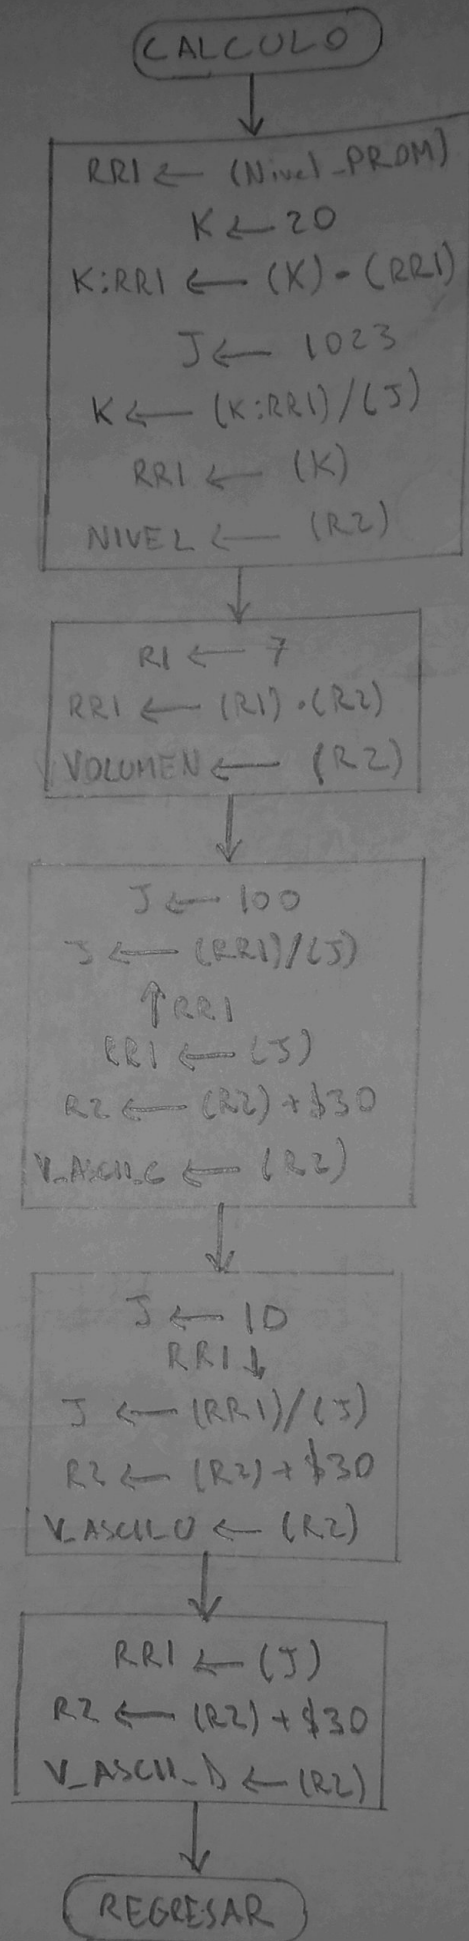 CALCULO
RR1 ← (Nivel_PROM)
K ← 20
K:RR1 ← (K) • (RR1)
J ← 1023
K ← (K:RR1)/(J)
RR1 ← (K)
NIVEL ← (R2)
R1 ← 7
RR1 ← (R1) • (R2)
VOLUMEN ← (R2)
J ← 100
J ← (RR1)/(J)
↑RR1
RR1 ← (J)
R2 ← (R2) + $30
V_ASCII_C ← (R2)
J ← 10
RR1↓
J ← (RR1)/(J)
R2 ← (R2) + $30
V_ASCII_U ← (R2)
RR1 ← (J)
R2 ← (R2) + $30
V_ASCII_D ← (R2)
REGRESAR